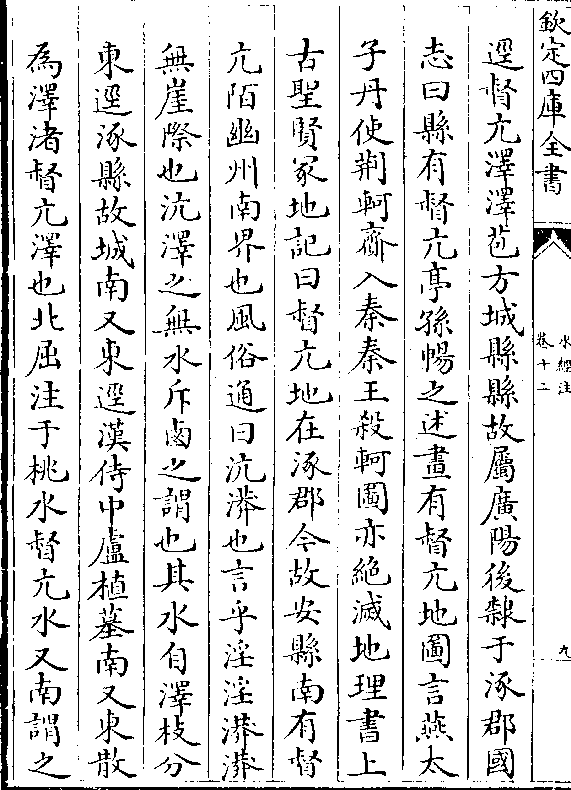 欽定四庫全書
水經注
卷十二
九
逕督亢澤澤苞方城縣縣故屬廣陽後隸于涿郡國
志曰縣有督亢亭孫暢之述畫有督亢地圖言燕太
子丹使荆軻齎入秦秦王殺軻圖亦絶滅地理書上
古聖賢冢地記曰督亢地在涿郡今故安縣南有督
亢陌幽州南界也風俗通曰沆漭也言乎淫淫漭漭
無崖際也沆澤之無水斥鹵之謂也其水自澤枝分
東逕涿縣故城南又東逕漢侍中盧植墓南又東散
為澤渚督亢澤也北屈注于桃水督亢水又南謂之